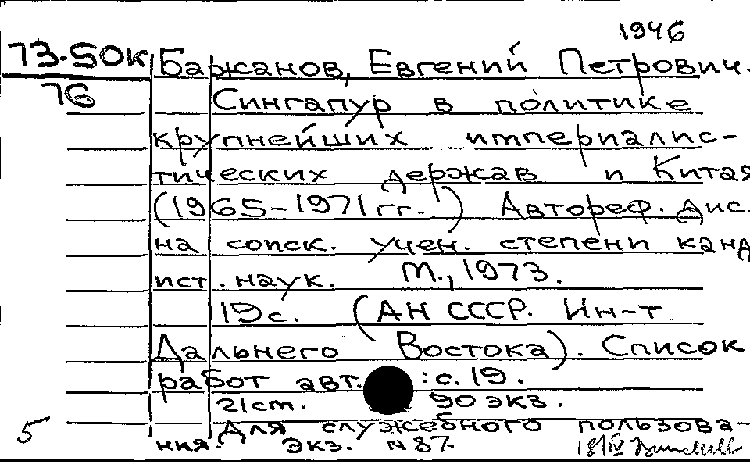 1946
73-50К Бажанов, Евгений Петрович.
76 Сингапур в политике
крупнейших империалис-
тических держав и Китая
(1965-1971 гг.) Автореф. дис.
на соиск. учен. степени канд
ист. наук. М., 1973.
19с. (АН СССР. Ин-т
Дальнего Востока). Список
работ авт. : с. 19.
21 см. 90 экз.
5 Для служебного пользова-
ния. Экз. N 87